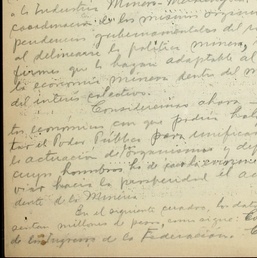 a la Industria Minero-Metalúrgica,
coordinación de los mismos organismos
pendencias gubernamentales del
al delinear la política minera,
firme que la haga adaptable al
la economía minera dentro del
del interés colectivo.
Consideramos ahora
tos económicos con que podría
tar el Poder Público para unificar
la actuación de organismos y de
cuyos hombros ha de
visor hacia la prosperidad el
dente de la Minería.
En el siguiente cuadro, los datos
sentan millones de pesos, como sigue:
de Ingresos de la Federación.